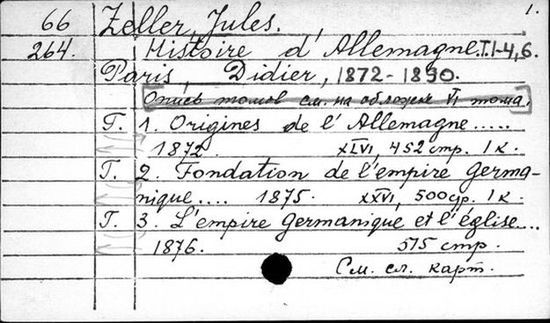 1.
66 Zeller, Jules.
264. Histoire d'Allemagne. T.1-4,6.
Paris, Didier, 1872-1890.
Опись томов см. на обложке VI тома.
Т. 1. Origines de l'Allemagne.....
1872. XIVI, 452 стр. 1 к.
Т. 2. Fondation de l'empire Germa-
nique.... 1875. XXVI, 500 стр. 1 к.
Т. 3. L'empire Germanique et l'église...
1876. 515 стр.
См. сл. карт.